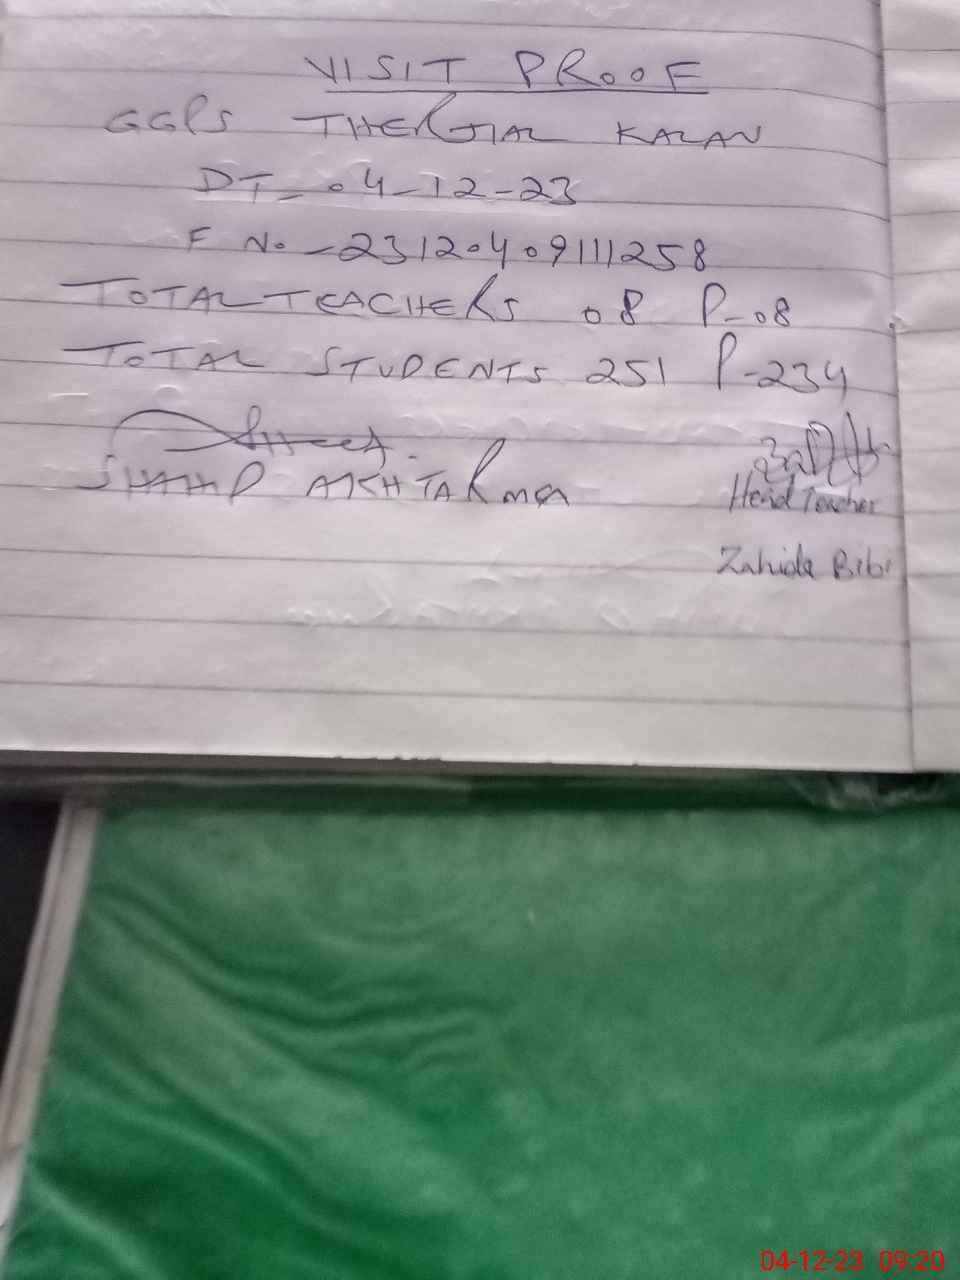 VISIT PROOF
GGPS THERJIAL KALAN
DT_ 04-12-23
F No -23120409111258
TOTAL TEACHERS 08 P-08
TOTAL STUDENTS 251 P-234
AKHTAR MEA
Head Teacher
Zahida Bibi
04-12-23 09:20